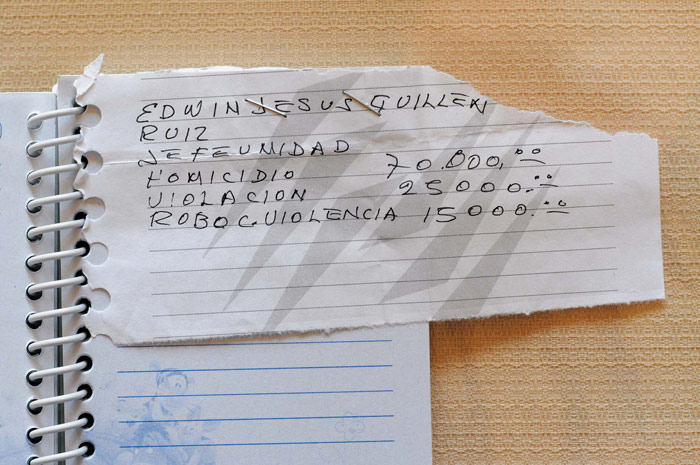 EDWIN JESUS GUILLEN
RUIZ
JEFEUNIDAD
HOMICIDIO 70.000,00
VIOLACION 25000.00
ROBO C VIOLENCIA 15000.00